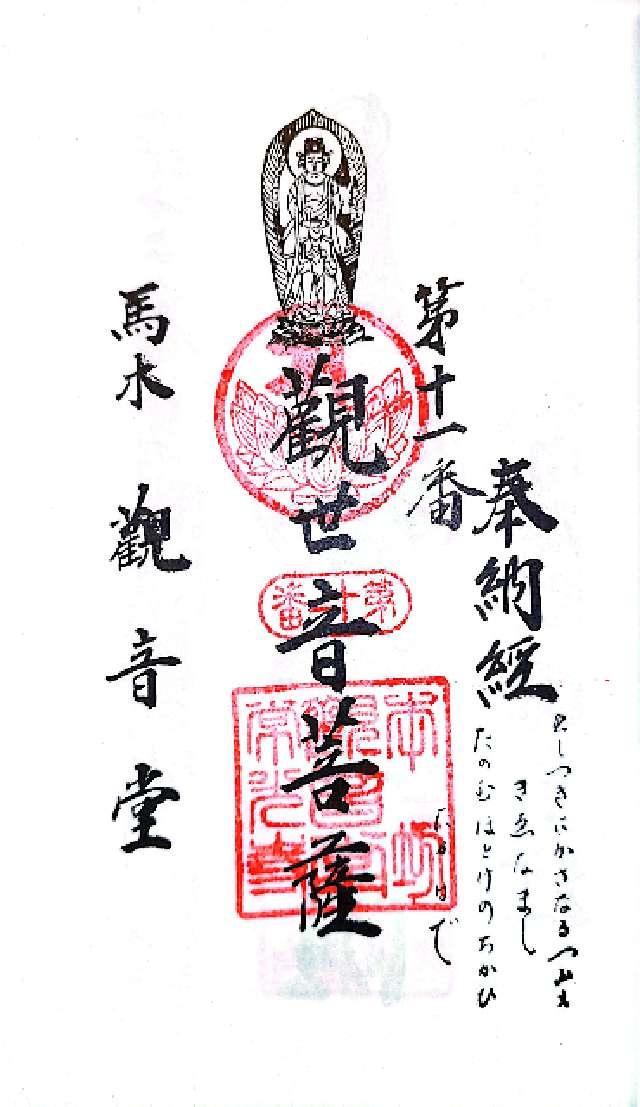 奉納經
第十一番
としつきにかさなるつみも
きゑなまし
たのむほとけのちかひ
觀世音菩薩
第十一番
馬水 觀音堂